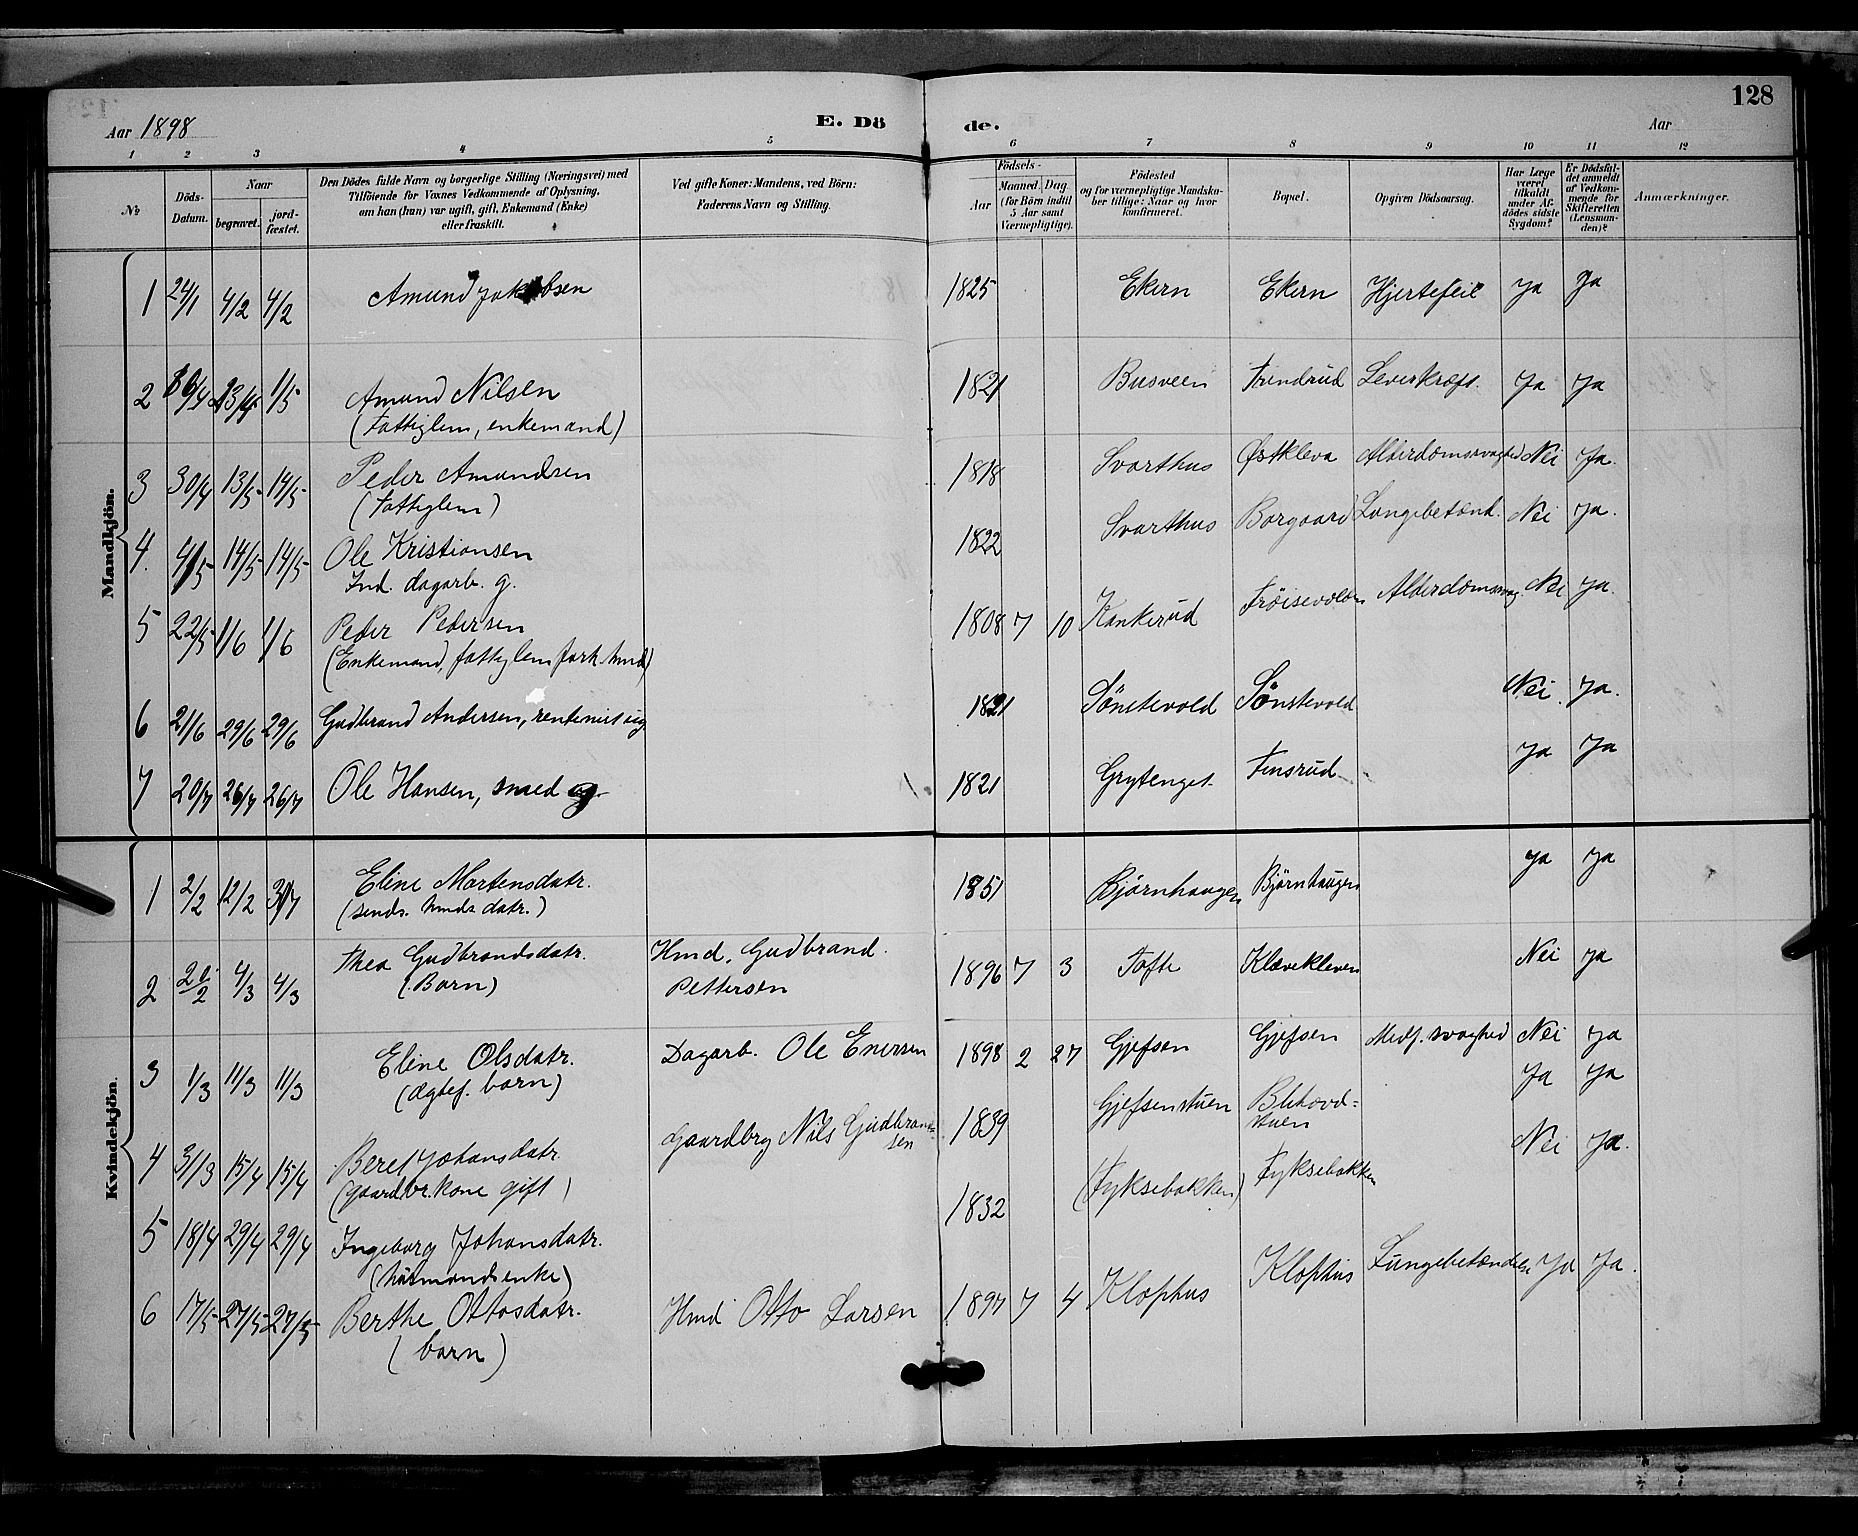 128
Aar 1898
E. Dö
de.
Aar
1 2 3 4 5 6 7 8 9 10 11 12
№
Döds-Datum.
Naar
begravet.
jord-fæstet.
Den Dödes fulde Navn og borgerlige Stilling (Næringsvei) med
Tilföiende for Voxnes Vedkommende af Oplysning,
om han (hun) var ugift, gift, Enkemand (Enke)
eller fraskilt.
Ved gifte Koner: Mandens, ved Börn:
Faderens Navn og Stilling.
Födsels-
Aar
Maaned. Dag
(for Börn indtil
5 Aar samt
Værnepligtige).
Födested
og for værnepligtige Mandska-
ber tillige: Naar og hvor
konfirmeret.
Bopæl.
Opgiven Dödsaarsag.
Har Læge
været
tilkaldt
under Af-
dödes sidste
Sygdom?
Er Dödsfal-
det anmeldt
af Vedkom-
mende for
Skifteretten
(Lensman-
den)?
Anmærkninger.
Mandkjön.
1 24/1 4/2 4/2 Amund Jakobsen 1825 Ekern Ekern Hjertefeil Ja Ja
2 1/5 Amund Nilsen 1821 Busveen Trendrud Leverkræft. Ja Ja
(Fattiglem, enkemand)
3 30/4 13/5 14/5 Peder Amundsen 1818 Svarthus Østkleva Alderdomssvaghed Nei Ja.
(Fattiglem)
4. 4/5 14/5 14/5 Ole Kristiansen 1822 Svarthus Borgaard Lungebetænd. Nei Ja.
Ind. dagarb. g.
5 22/5 1/6 1/6 Peder Pedersen 1808 7 10 Kankerud Frøisevolden Alderdomssvag. Nei Ja.
(Enkemand, fattiglem forh. hmd)
6 21/6 29/6 29/6 Gudbrand Andersen, rentenist ug. 1821 Sönstevold Sönstevold Nei. Ja.
7 20/7 26/7 26/7 Ole Hansen, smed g. 1821 Grytenget. Finsrud Ja Ja
Kvindekjön.
1 2/2 12/2 31/7 Eline Martensdatr. 1851 Bjørnhaugen Bjørnhaugen Ja Ja
(sinds. hmds datr.)
2 4/3 4/3 Thea Gudbrandsdatr. Hmd. Gudbrand 1896 7 3 Tofte Klævekleven Nei Ja
(Barn) Pettersen
3 1/3 11/3 11/3 Eline Olsdatr. Dagarb. Ole Enersen 1898 2 27 Gjefsen Gjefsen Medf. svaghed Nei Ja
(ægtef. barn)
4 31/3 15/4 15/4 Beret Johansdatr. Gaardbrg Nils Gudbrand= 1839 Gjefsenstuen Ja Ja
(gaardbr. kone gift) sen stuen
5 18/4 29/4 29/4 Ingeborg Johansdatr. 1832 (Fyksebakken) Fyksebakken Nei Ja.
(husmandsenke)
6 17/5 27/5 27/5 Berthe Ottosdatr. Hmd Otto Larsen 1897 7 4 Klophus Klophus Lungebetændelse Ja Ja.
(barn)